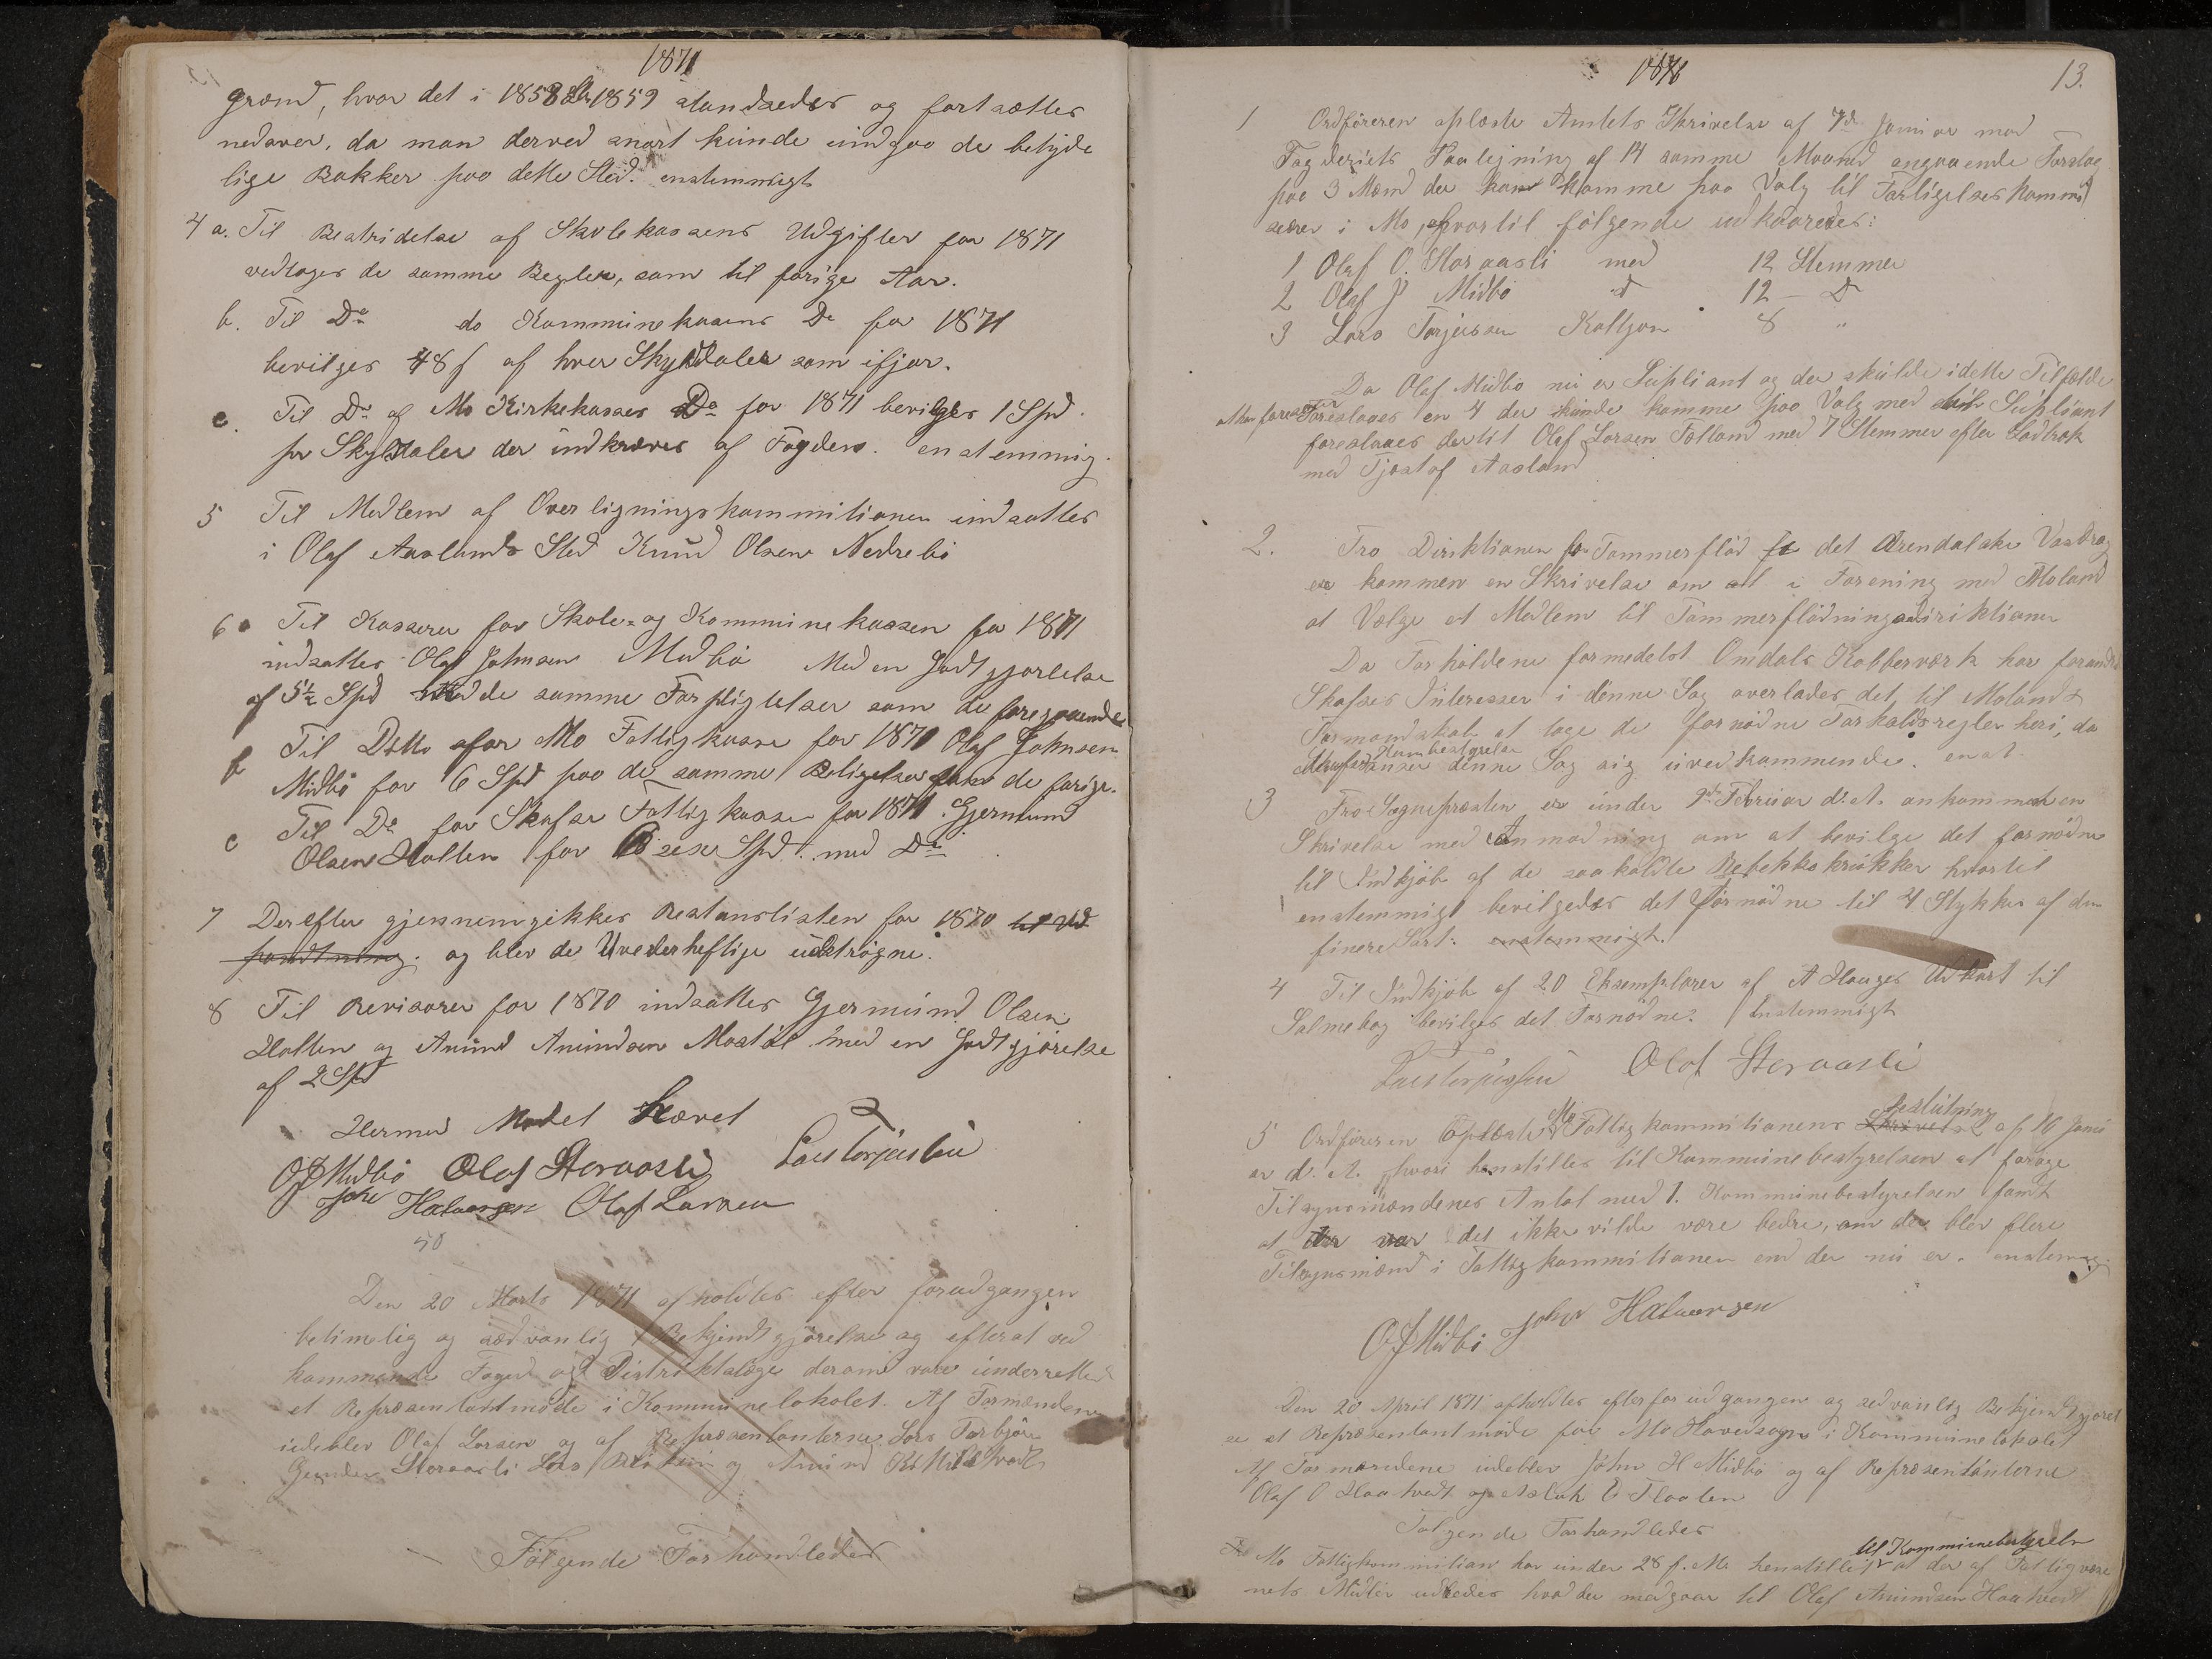 1871
grænd, hvor det i 1858 & 1859 standsedes og fortsættes
nedover, da man derved snart kunde undgaa de betyde
lige Bakker paa dette Sted. enstemmigt
4 a. Til Bestridelse af Skolekassens Udgifter for 1871
vedtoges de samme Regler, som til forige Aar.
b. Til Do do Kommunekassens Do for 1871
bevilges 48 s af hver Skylddaler som ifjor.
c. Til Do af Mo Kirkekasses Do for 1871 bevilges 1 Spd.
pr Skylddaler der indkræves af Fogden. enstemmig.
5 Til Medlem af Overligningskommitionen indsattes
i Olaf Aaslands Sted Knud Olsen Nedrebö
6 a Til Kasserer for Skole- og Kommunekassen for 1871
indsattes Olaf Johnsen Midbö Med en Godtgjörelse
af 5½ Spd Med de samme Forpligtelser som de foregaaende
b Til Ditto for Mo Fattigkasse for 1871 Olaf Johnsen
Midbö for 6 Spd paa de samme Betigelser som de forige.
c Til Do for Skafse Fattigkasse for 1871. Gjermund
Olsen Holten for sex Spd. med Do
7 Derefter gjennemgikkes Restanslisten for 1870 til Ud
pantning. og blev de Uvederheftige udströgne.
8 Til Revisorer for 1870 indsattes Gjermund Olsen
Holten og Anund Anundsen Mostöl med en Godtgjörelse
af 2 Spd
Hermed Mødet Hævet
OJ Midbö Olaf Storaasli Lars Torjussen
John Halvorsen Olaf Larsen
50
Den 20 Marts 1871 afholdtes efter forudgangen
betimelig og sædvanlig Bekjendtgjörelse og efterat ved
kommende Foged og Distriktslæge derom vare underrettede
et Repræsentantmöde i Kommunelokalet. Af Formændene
udeblev Olaf Larsen og af Repræsentanterne Lars Torbjörn
Storaasli Lars og Anund
Fölgende Forhandledes
1871
13.
1 Ordföreren oplæste Amtets Skrivelse af 7de Januar med
Fogderiets Paategning af 14 samme Maaned angaaende Forslag
paa 3 Mænd der kan komme paa Valg til Forligelseskommis
særer i Mo, hvortil fölgende udkaaredes:
1 Olaf O. Storaasli med 12 Stemmer
2 Olaf J Midbö d 12 - D
3 Lars Torjussen Kaltzon 8 "
Da Olaf Midbö nu er Supliant og der skulde i dette Tilfælde
en 4 der kunde komme paa Valg med Supliant
foreslaaes dertil Olaf Larsen Tolland med 7 Stemmer efter Lodtræk
med Tjostof Aasland
2. Fra Direktionen for Tømmerflöd det Arendalske Vasdrag
er kommen en Skrivelse om at i Forening med Moland
at Vælge et Medlem til Tømmerflödningsdirektionen
Da Forholdene formedelst Omdals Kobberværk har forandret
Skafses Interesser i denne Sag overlades det til Molands
Formandskab at tage de fornödne Forholdsregler heri, da
Kombestyrelse
anser denne Sag sig uvedkommende. enst.
3 Fra Sognepræsten er under 9de Februar d. A. ankommet en
Skrivelse med Anmodning om at bevilge det fornödne
til Indkjöb af de saakaldte Rebekkakrukker hvortil
enstemmigt bevilgedes det fornödne til 4 Stykker af den
finere Sort. enstemmigt.
4 Til Indkjöb af 20 Eksemplarer af A Hauges Udkast til
Salmebog bevilges det Fornödne. Enstemmigt
Lars Torjussen Olaf Storaasli
Beslutning
5 Ordföreren oplæste Mo Fattigkommitionens Skrivelse af 16 Janu
ar d. A. hvori henstilles til Kommunebestyrelsen at foröge
Tilsynsmændenes Antal med 1. Kommunebestyrelsen fandt
at det ikke vilde være bedre, om der blev flere
Tilsynsmænd i Fattigkommitionen end der nu er. enstemmig.
OJ Midbö John Halvorsen
Den 20 April 1871 afholdtes efter forudgangen og sedvanlig Bekjendtgjörel
se et Repræsentantmöde for Mo Hovedsogn i Kommunelokalet
Af Formændene udeblev John H Midbö og af Repræsentanterne
Olaf O Haatvedt og Aslak O Flaaten
Fölgende Forhandledes
til Kommunebestyrels
Mo Fattigkommition har under 28 f. M. henstillet at der af Fattigvæse
nets Midler udredes hvad der medgaar til Olaf Anundsen Haatvedt